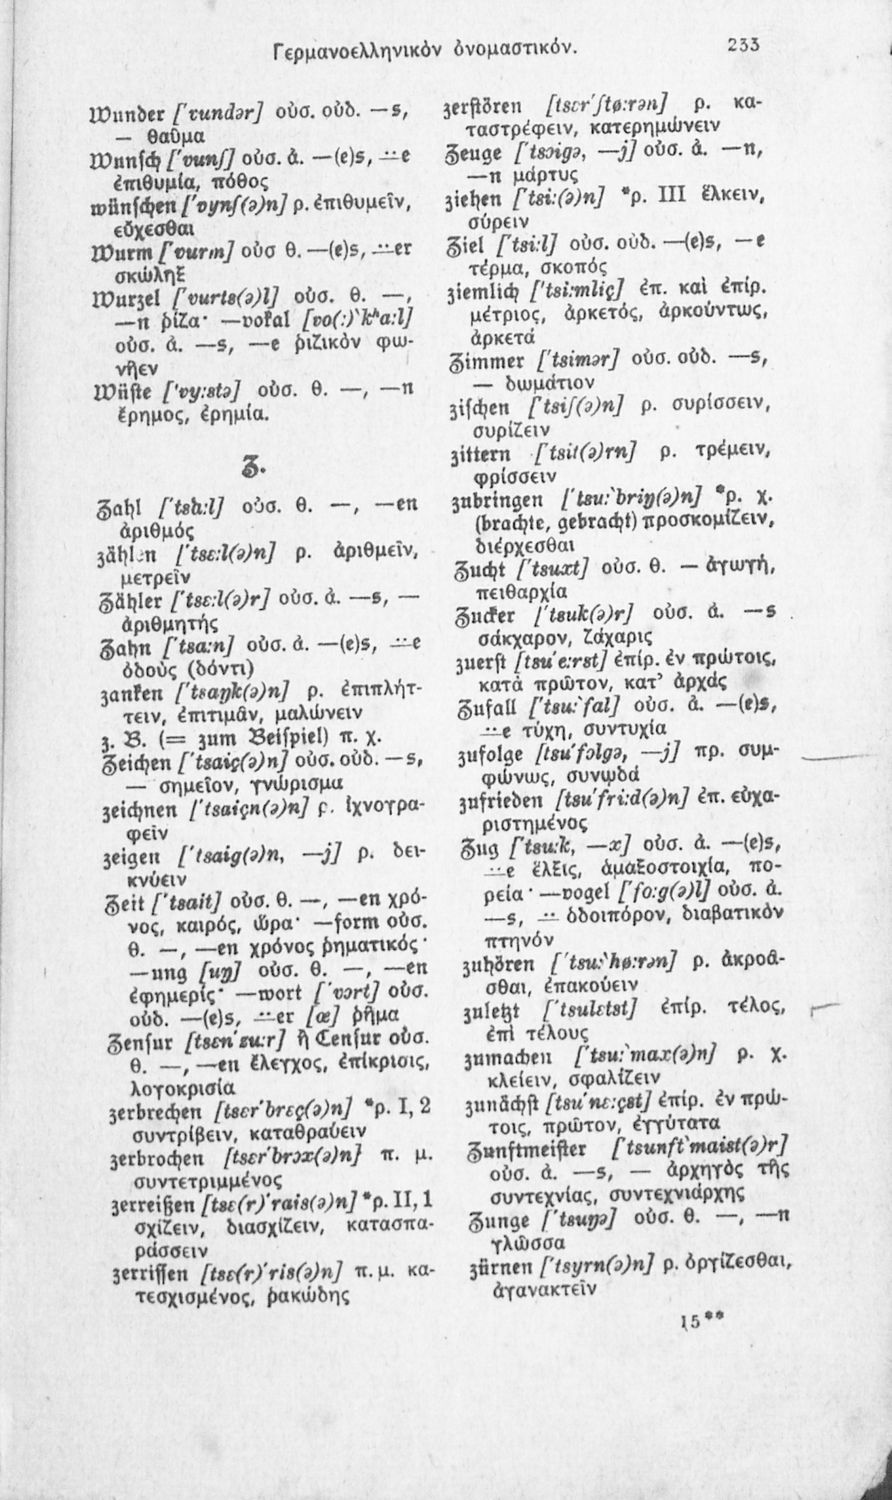 Γερμανοελληνικὸν ὀνομαστικόν. 233
Wunder ['vundər] οὐσ. οὐδ. —s,
— θαῦμα
Wunsch ['vunʃ] οὐσ. ἀ. —(e)s, —̈e
ἐπιθυμία, πόθος
wünschen ['vynʃ(ə)n] ρ. ἐπιθυμεῖν,
εὔχεσθαι
Wurm ['vurm] οὐσ θ. —(e)s, —̈er
σκώληξ
Wurzel ['vurts(ə)l] οὐσ. θ. —,
—n ῥίζα· —vokal [vo(:)ˋkʰa:l]
οὐσ. ἀ. —s, —e ῥιζικὸν φω-
νῆεν
Wüste ['vy:stə] οὐσ. θ. —, —n
ἔρημος, ἐρημία.
Z.
Zahl ['tsa:l] οὐσ. θ. —, —en
ἀριθμός
zählen ['tsɛ:l(ə)n] ρ. ἀριθμεῖν,
μετρεῖν
Zähler ['tsɛ:l(ə)r] οὐσ. ἀ. —s, —
ἀριθμητής
Zahn ['tsa:n] οὐσ. ἀ. —(e)s, —̈e
ὀδοὺς (δόντι)
zanken ['tsaŋk(ə)n] ρ. ἐπιπλήτ-
τειν, ἐπιτιμᾶν, μαλώνειν
z. B. (= zum Beispiel) π. χ.
Zeichen ['tsaiç(ə)n] οὐσ. οὐδ. —s,
— σημεῖον, γνώρισμα
zeichnen ['tsaiçn(ə)n] ρ. ἰχνογρα-
φεῖν
zeigen ['tsaig(ə)n, —j] ρ. δει-
κνύειν
Zeit ['tsait] οὐσ. θ. —, —en χρό-
νος, καιρός, ὥρα· —form οὐσ.
θ. —, —en χρόνος ῥηματικός·
—ung [uŋ] οὐσ. θ. —, —en
ἐφημερίς· —wort ['vɔrt] οὐσ.
οὐδ. —(e)s, —̈er [œ] ῥῆμα
Zensur [tsɛn'zu:r] ἢ Censur οὐσ.
θ. —, —en ἔλεγχος, ἐπίκρισις,
λογοκρισία
zerbrechen [tsɛr'brɛç(ə)n] *ρ. I, 2
συντρίβειν, καταθραύειν
zerbrochen [tsɛr'brɔx(ə)n] π. μ.
συντετριμμένος
zerreißen [tsɛ(r)'rais(ə)n] *ρ. II, 1
σχίζειν, διασχίζειν, κατασπα-
ράσσειν
zerrissen [tsɛ(r)'ris(ə)n] π. μ. κα-
τεσχισμένος, ῥακώδης
zerstören [tsɛr'ʃtø:rən] ρ. κα-
ταστρέφειν, κατερημώνειν
Zeuge ['tsɔigə, —j] οὐσ. ἀ. —n,
—n μάρτυς
ziehen ['tsi:(ə)n] *ρ. III ἕλκειν,
σύρειν
Ziel ['tsi:l] οὐσ. οὐδ. —(e)s, —e
τέρμα, σκοπός
ziemlich ['tsi:mliç] ἐπ. καὶ ἐπίρ.
μέτριος, ἀρκετός, ἀρκούντως,
ἀρκετά
Zimmer ['tsimər] οὐσ. οὐδ. —s,
— δωμάτιον
zischen ['tsiʃ(ə)n] ρ. συρίσσειν,
συρίζειν
zittern ['tsit(ə)rn] ρ. τρέμειν,
φρίσσειν
zubringen ['tsu:ˋbriŋ(ə)n] *ρ. χ.
(brachte, gebracht) προσκομίζειν,
διέρχεσθαι
Zucht ['tsuxt] οὐσ. θ. — ἀγωγή,
πειθαρχία
Zucker ['tsuk(ə)r] οὐσ. ἀ. —s
σάκχαρον, ζάχαρις
zuerst [tsu'e:rst] ἐπίρ. ἐν πρώτοις,
κατὰ πρῶτον, κατ' ἀρχάς
Zufall ['tsu:ˋfal] οὐσ. ἀ. —(e)s,
—̈e τύχη, συντυχία
zufolge [tsu'fɔlgə, —j] πρ. συμ-
φώνως, συνῳδά
zufrieden [tsu'fri:d(ə)n] ἐπ. εὐχα-
ριστημένος
Zug ['tsu:k, —x] οὐσ. ἀ. —(e)s,
—̈e ἕλξις, ἁμαξοστοιχία, πο-
ρεία· —vogel ['fo:g(ə)l] οὐσ. ἀ.
—s, —̈ ὁδοιπόρον, διαβατικὸν
πτηνόν
zuhören ['tsu:ˋhø:rən] ρ. ἀκροᾶ-
σθαι, ἐπακούειν
zuletzt ['tsulɛtst] ἐπίρ. τέλος,
ἐπὶ τέλους
zumachen ['tsu:ˋmax(ə)n] ρ. χ.
κλείειν, σφαλίζειν
zunächst [tsu'nɛ:çst] ἐπίρ. ἐν πρώ-
τοις, πρῶτον, ἐγγύτατα
Zunftmeister ['tsunftˋmaist(ə)r]
οὐσ. ἀ. —s, — ἀρχηγὸς τῆς
συντεχνίας, συντεχνιάρχης
Zunge ['tsuŋə] οὐσ. θ. —, —n
γλῶσσα
zürnen ['tsyrn(ə)n] ρ. ὀργίζεσθαι,
ἀγανακτεῖν
15**